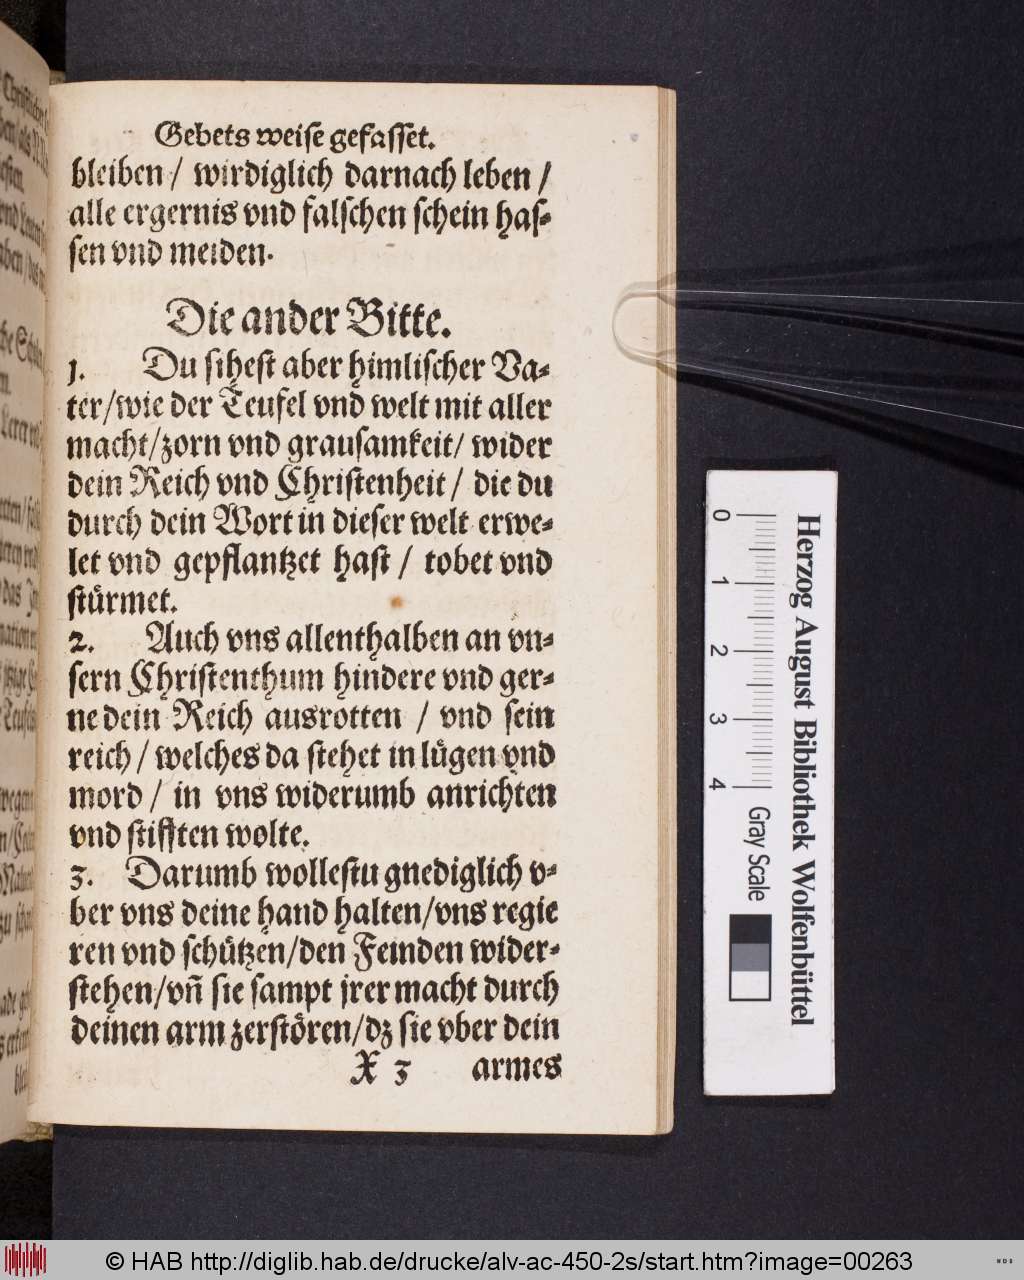 Gebets weise gefasset.
bleiben / wirdiglich darnach leben /
alle ergernis vnd falschen schein has⸗
sen vnd meiden.
Die ander Bitte.
1. Du sihest aber himlischer Va⸗
ter/wie der Teufel vnd welt mit aller
macht/zorn vnd grausamkeit/ wider
dein Reich vnd Christenheit / die du
durch dein Wort in dieser welt erwe⸗
let vnd gepflantzet hast / tobet vnd
stürmet.
2. Auch vns allenthalben an vn⸗
sern Christenthum hindere vnd ger⸗
ne dein Reich ausrotten / vnd sein
reich / welches da stehet in lügen vnd
mord / in vns widerumb anrichten
vnd stifften wolte.
3. Darumb wollestu gnediglich v⸗
ber vns deine hand halten/vns regie
ren vnd schützen/den Feinden wider⸗
stehen/vn̄ sie sampt jrer macht durch
deinen arm zerstören/dz sie vber dein
X 3 armes
0 1 2 3 4 Gray Scale
Herzog August Bibliothek Wolfenbüttel
© HAB http://diglib.hab.de/drucke/alv-ac-450-2s/start.htm?image=00263